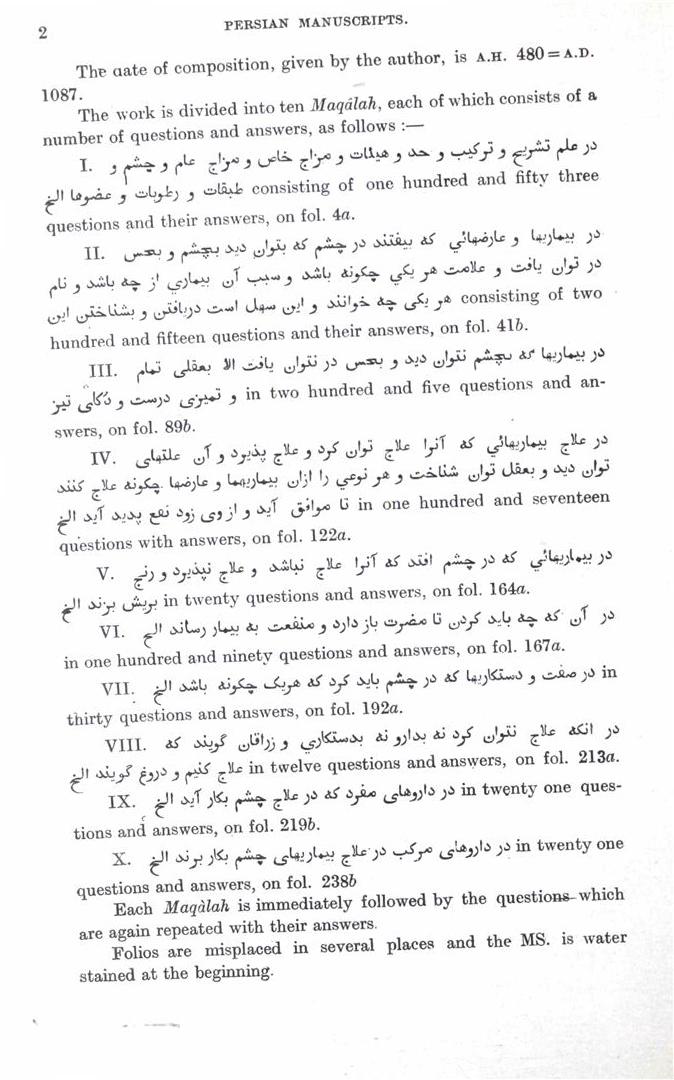 2
PERSIAN MANUSCRIPTS.
The date of composition, given by the author, is A.H. 480=A.D.
1087.
The work is divided into ten Maqâlah, each of which consists of a
number of questions and answers, as follows :—
I. در علم تشريح و تركيب و حد و هيئات و مزاج خاص و مزاج عام و چشم و
طبقات و رطوبات و عضوها الخ consisting of one hundred and fifty three
questions and their answers, on fol. 4a.
II. در بيماريها و عارضهائي كه بيفتند در چشم كه بتوان ديد بچشم و بحس
در توان يافت و علامت هر يكي چگونه باشد و سبب آن بيماري از چه باشد و نام
هر يكى چه خوانند و اين سهل است دريافتن و بشناختن اين consisting of two
hundred and fifteen questions and their answers, on fol. 41b.
III. در بيماريها كه بچشم نتوان ديد و بحس در نتوان يافت الا بعقلى تمام
و تميزى درست و ذكاى تيز in two hundred and five questions and an-
swers, on fol. 89b.
IV. در علاج بيماريهائي كه آنرا علاج توان كرد و علاج پذيرد و آن علتهاى
توان ديد و بعقل توان شناخت و هر نوعي را ازان بيماريهما و عارضها چگونه علاج كنند
تا موافق آيد و از وى زود نفع پديد آيد الخ in one hundred and seventeen
questions with answers, on fol. 122a.
V. در بيماريهائي كه در چشم افتد كه آنرا علاج نباشد و علاج نپذيرد و رنج
بريش برند الخ in twenty questions and answers, on fol. 164a.
VI. در آن كه چه بايد كردن تا مضرت باز دارد و منفعت به بيمار رساند الخ
in one hundred and ninety questions and answers, on fol. 167a.
VII. در صفت و دستكاريها كه در چشم بايد كرد كه هريک چگونه باشد الخ in
thirty questions and answers, on fol. 192a.
VIII. در انكه علاج نتوان كرد نه بدارو نه بدستكاري و زراقان گويند كه
علاج كنيم و دروغ گويند الخ in twelve questions and answers, on fol. 213a.
IX. در داروهاى مفرد كه در علاج چشم بكار آيد الخ in twenty one ques-
tions and answers, on fol. 219b.
X. در داروهاى مركب در علاج بيماريهاى چشم بكار برند الخ in twenty one
questions and answers, on fol. 238b
Each Maqàlah is immediately followed by the questions which
are again repeated with their answers.
Folios are misplaced in several places and the MS. is water
stained at the beginning.